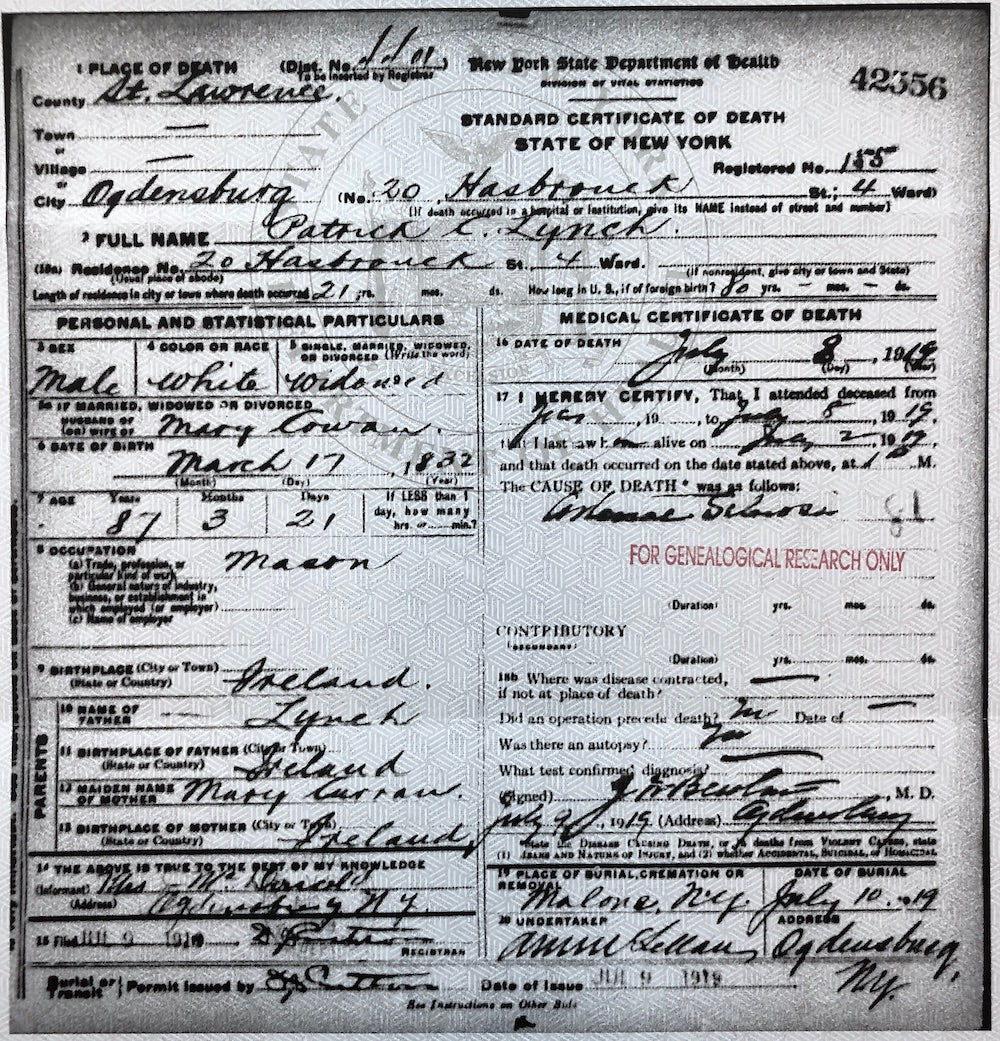 1 PLACE OF DEATH (Dist. No. 4401) New York State Department of Health 42356
To be inserted by Registrar DIVISION OF VITAL STATISTICS
County St. Lawrence.
STANDARD CERTIFICATE OF DEATH
Town —
or
STATE OF NEW YORK
Village —
or
Registered No. 155
City Ogdensburg (No. 20 Hasbrouck St.; 4 Ward)
[If death occurred in a hospital or institution, give its NAME instead of street and number]
2 FULL NAME Patrick C. Lynch.
(18a) Residence No. 20 Hasbrouck St. 4 Ward.
(Usual place of abode) (If nonresident, give city or town and State)
Length of residence in city or town where death occurred 21 yrs. mos. ds. How long in U. S., if of foreign birth? 80 yrs. — mos. — ds.
PERSONAL AND STATISTICAL PARTICULARS
3 SEX 4 COLOR OR RACE 5 SINGLE, MARRIED, WIDOWED, OR DIVORCED (Write the word)
Male White Widowed
5a IF MARRIED, WIDOWED OR DIVORCED
HUSBAND OF
(OR) WIFE OF Mary Cowan.
6 DATE OF BIRTH
March 17, 1832
(Month) (Day) (Year)
7 AGE Years Months Days If LESS than 1 day, how many hrs. or min.?
87 3 21
8 OCCUPATION
(a) Trade, profession, or particular kind of work Mason
(b) General nature of industry, business, or establishment in which employed (or employer)
(c) Name of employer
9 BIRTHPLACE (City or Town)
(State or Country) Ireland.
PARENTS
10 NAME OF FATHER — Lynch
11 BIRTHPLACE OF FATHER (City or Town)
(State or Country) Ireland
12 MAIDEN NAME OF MOTHER Mary Curran.
13 BIRTHPLACE OF MOTHER (City or Town)
(State or Country) Ireland
14 THE ABOVE IS TRUE TO THE BEST OF MY KNOWLEDGE
(Informant) Mrs. M.
(Address) Ogdensburg N.Y.
15 Filed JUL 9 1919
REGISTRAR
MEDICAL CERTIFICATE OF DEATH
16 DATE OF DEATH
July 8, 1919
(Month) (Day) (Year)
17 I HEREBY CERTIFY, That I attended deceased from
, 19 , to July 8 1919.
that I last saw h alive on July 2, 1919.
and that death occurred on the date stated above, at M.
The CAUSE OF DEATH* was as follows:
81
FOR GENEALOGICAL RESEARCH ONLY
(Duration) yrs. mos. ds.
CONTRIBUTORY
(SECONDARY)
(Duration) yrs. mos. ds.
18b Where was disease contracted, if not at place of death? —
Did an operation precede death? No Date of —
Was there an autopsy? No
What test confirmed diagnosis? —
(Signed) , M. D.
July 9, 1919 (Address) Ogdensburg
*State the DISEASE CAUSING DEATH, or in deaths from VIOLENT CAUSES, state
(1) MEANS AND NATURE OF INJURY, and (2) whether ACCIDENTAL, SUICIDAL, or HOMICIDAL
19 PLACE OF BURIAL, CREMATION OR REMOVAL DATE OF BURIAL
Malone, N.Y. July 10, 1919
20 UNDERTAKER ADDRESS
Ogdensburg, N.Y.
Burial or Transit Permit issued by Date of Issue JUL 9 1919
See Instructions on Other Side